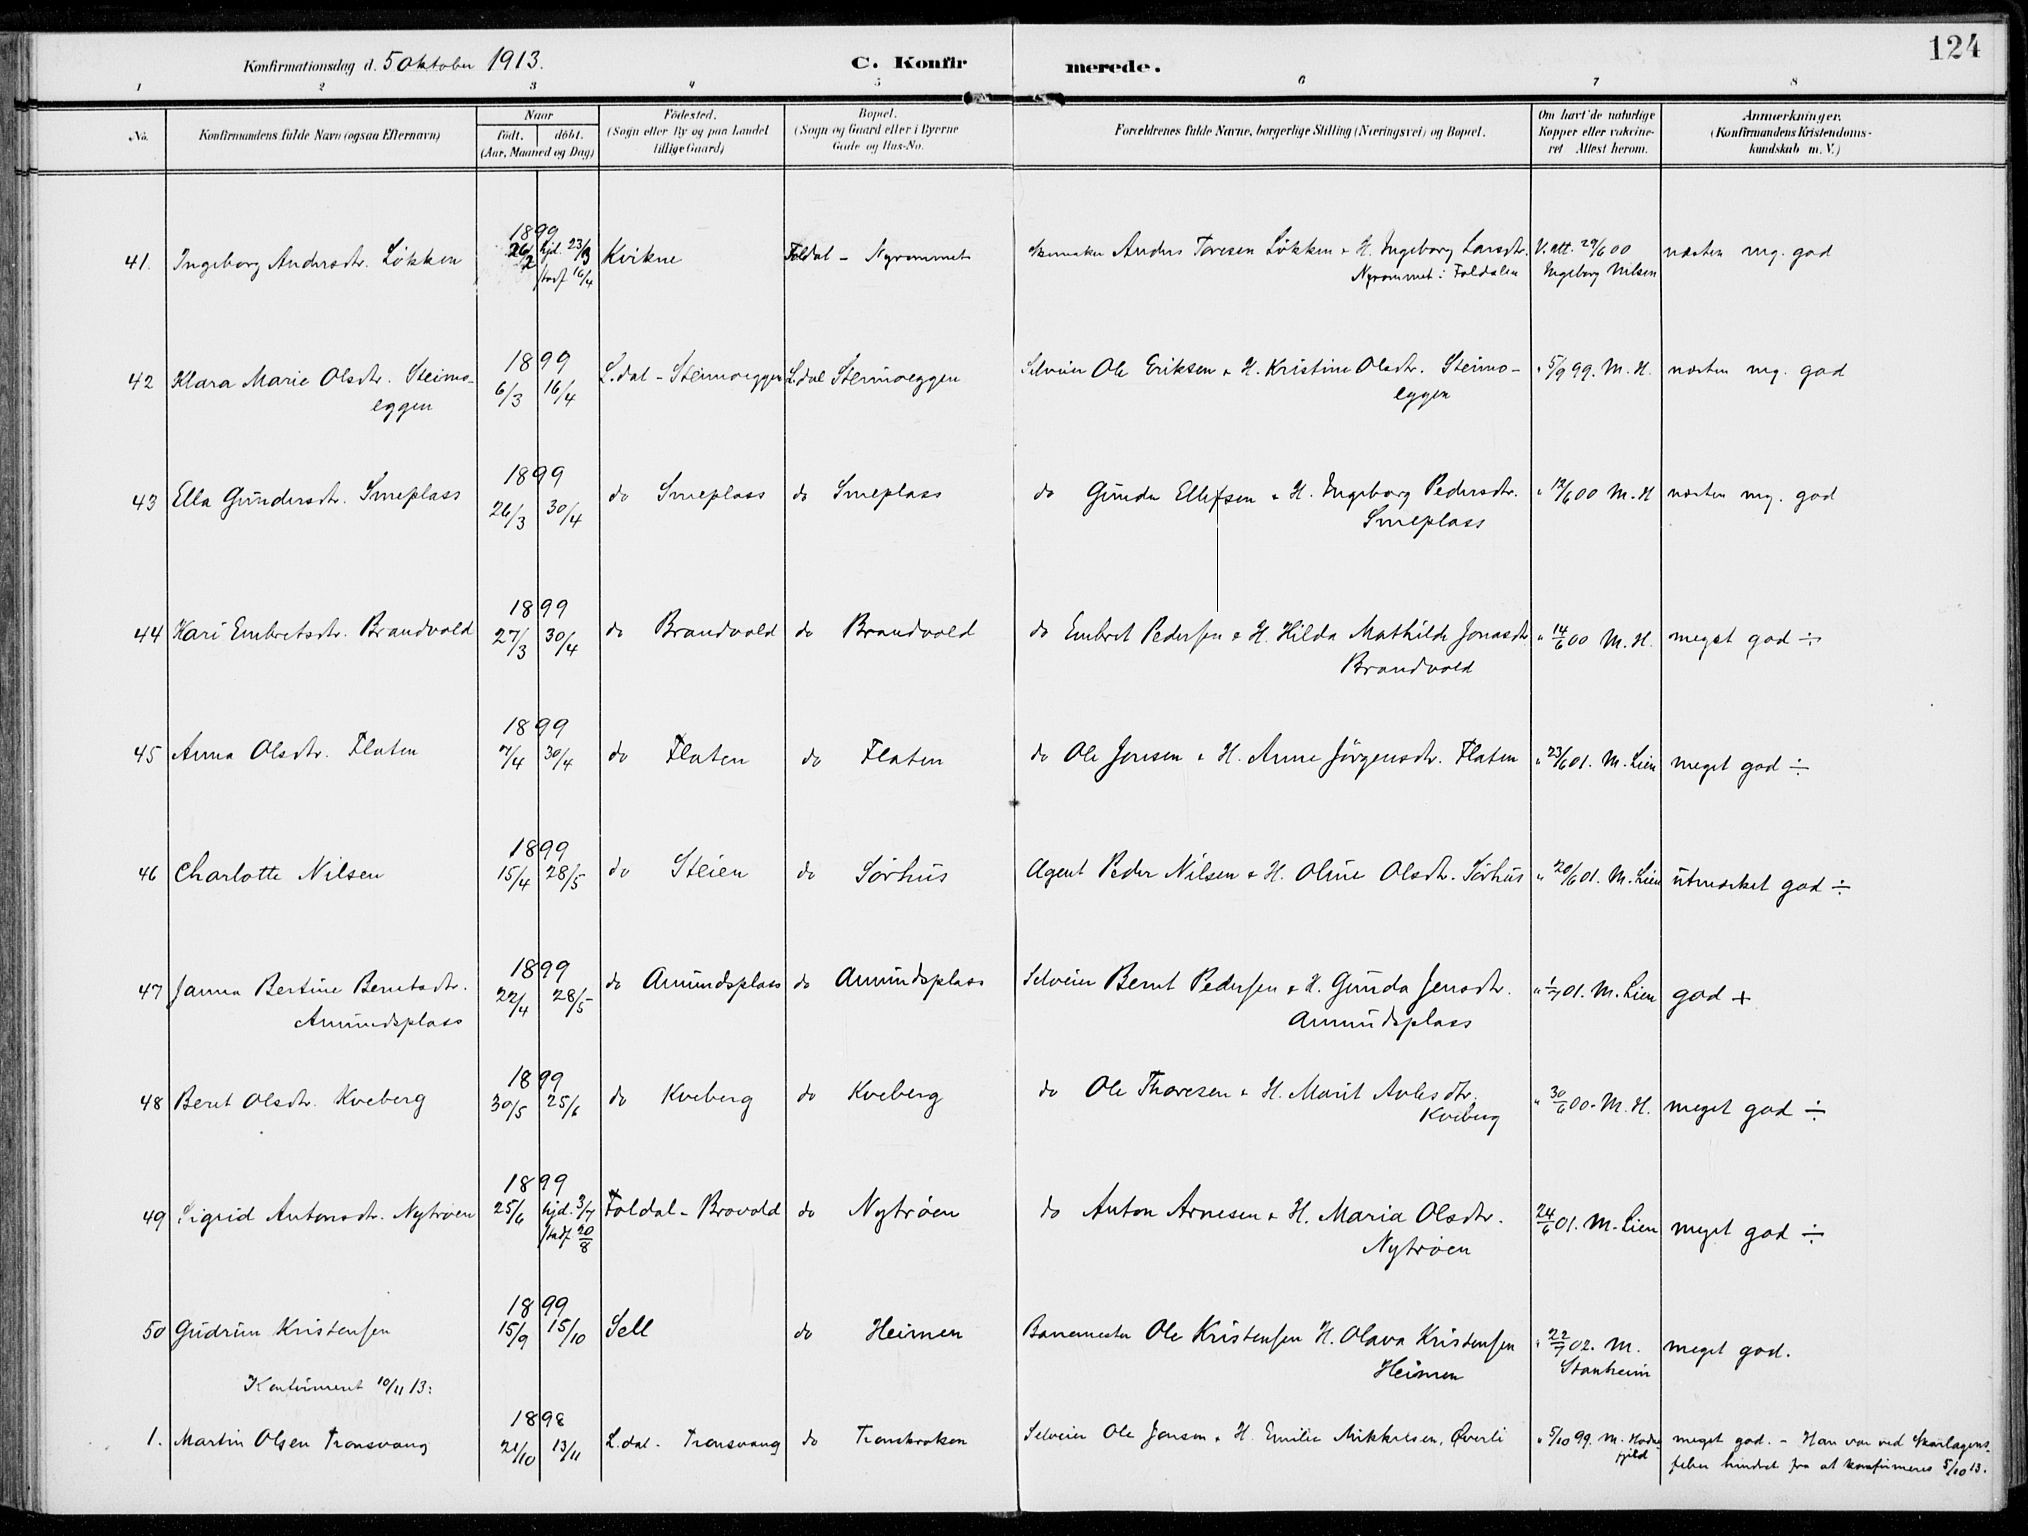 124
Konfirmationsdag d. 5 Oktober 1913.
C. Konfirmerede.
1 2 3 4 5 6 7 8
No. Konfirmandens fulde Navn (ogsaa Efternavn) Naar født. døbt. (Aar, Maaned og Dag) Fødested. (Sogn eller By og paa Landet tillige Gaard) Bopæl. (Sogn og Gaard eller i Byerne Gade og Hus-No. Forældrenes fulde Navne, borgerlige Stilling (Næringsvei) og Bopæl. Om havt de naturlige Kopper eller vakcineret Attest herom. Anmærkninger. (Konfirmandens Kristendomskundskab m. V.)
1899
41. Ingeborg Andersdtr. Løkken 26/2 hjd. 23/3 Kvikne Foldal - Nyrommet Skomaker Anders Toresen Løkken & H. Ingeborg Larsdtr. V. att. 29/6 00 næsten mg. god
stadf 16/4 Nyrommet i Foldalen Ingeborg Nilsen
1899
42 Klara Marie Olsdtr. Steimo- 6/3 16/4 L.dal - Steimoeggen L.dal Steimoeggen Selveier Ole Eriksen & H. Kristine Olsdtr. Steimo- " 5/9 99. M. H. næsten mg. god
eggen eggen
1899
43 Ella Gundersdtr. Smeplass 26/3 30/4 do Smeplass do Smeplass do Gunder Ellefsen & H. Ingeborg Pedersdtr. " 12/6 00 M. H næsten mg. god
Smeplass
1899
44 Kari Embretsdtr. Brandvold 27/3 30/4 do Brandvold do Brandvold do Embret Pedersen & H. Hilda Mathilde Jonasdtr " 14/6 00 M. H. meget god ÷
Brandvold
1899
45 Anna Olsdtr. Flaten 7/4 30/4 do Flaten do Flaten do Ole Jonsen & H. Anne Jörgensdtr. Flaten " 23/6 01. M. Lien meget god ÷
1899
46 Charlotte Nilsen 15/4 28/5 do Steien do Sörhus Agent Peder Nilsen & H. Oline Olsdtr. Sörhus " 20/6 01. M. Lien utmerket god ÷
1899
47 Janna Bertine Berntsdtr. 22/4 28/5 do Amundsplass do Amundsplass Selveier Bernt Pedersen & H. Gunda Jensdtr. " 1/7 01. M. Lien god +
Amundsplass Amundsplass
1899
48 Beret Olsdtr. Kveberg 30/5 25/6 do Kveberg do Kveberg do Ole Thoresen & H. Marit Avlesdtr. " 30/6 00. M. H. meget god ÷
Kveberg
1899
49 Sigrid Antonsdtr. Nytrøen 25/6 hjd. 3/7 Foldal - Brovold do Nytrøen do Anton Arnesen & H. Maria Olsdtr. 24/6 01. M. Lien meget god ÷
stadf. 20/8 Nytrøen
1899
50 Gudrun Kristensen 15/9 15/10 Sell do Heimen Banemester Ole Kristensen H. Olava Kristensen " 22/7 02. M. meget god.
Heimen Stanheim
Konfirmert 10/11 13:
1898
1. Martin Olsen Tronsvang 21/10 13/11 L.dal - Tronsvang do Tronkroken Selveier Ole Jonsen & H. Emilie Mikkelsen, Øverli " 5/10 99. M. meget god. - Han var ved skarlagens-
feber hindret fra at konfirmeres 5/10 13.